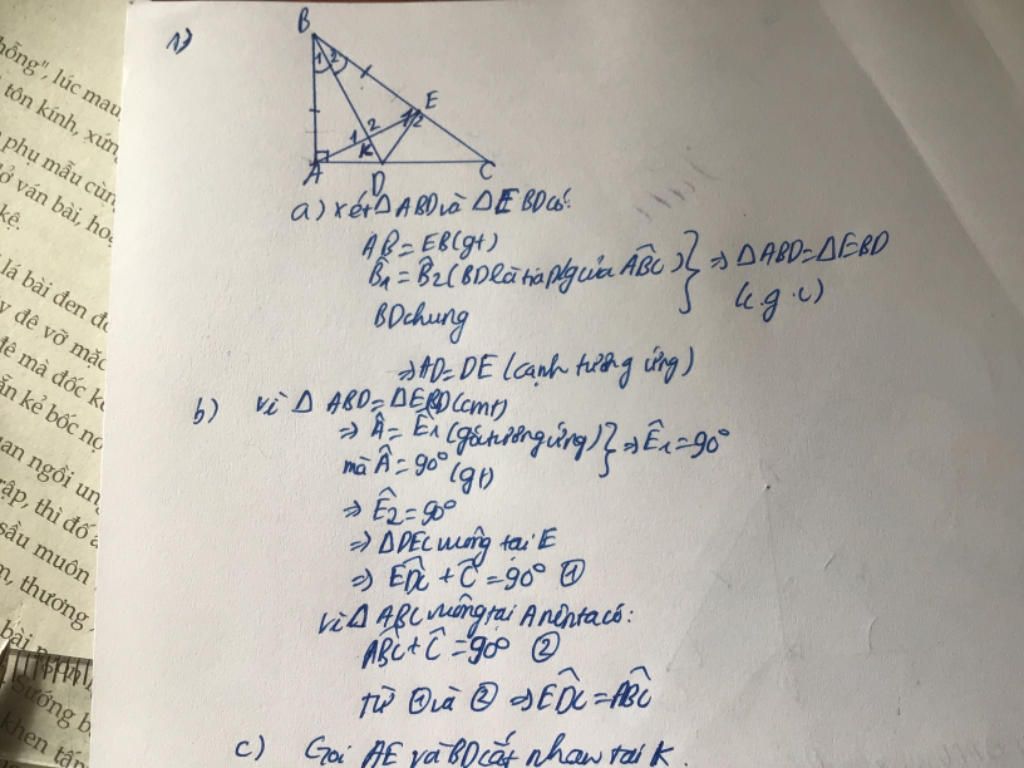 hồng", lúc mau
tôn kính, xứng
phụ mẫu cùng
ở ván bài, hoặ
kệ.
lá bài đen đ
y đê vỡ mặc
đê mà đốc k
ẫn kẻ bốc nọ
an ngồi ung
rập, thì đố
sầu muôn
m, thương
bài
Sướng b
khen tấp
1)
B
1 2
E
1 2
1 2
K
A D C
a) xét △ ABD và △ EBD có:
AB = EB (gt)
B̂1 = B̂2 (BD là tia p/g của ABĈ) } ⇒ △ ABD = △ EBD
BD chung (c.g.c)
⇒ AD = DE (cạnh tương ứng)
b) vì △ ABD = △ EBD (cmt)
⇒ Â = Ê1 (góc tương ứng) } ⇒ Ê1 = 90°
mà Â = 90° (gt)
⇒ Ê2 = 90°
⇒ △ DEC vuông tại E
⇒ EDĈ + Ĉ = 90° ①
vì △ ABC vuông tại A nên ta có:
ABĈ + Ĉ = 90° ②
Từ ① và ② ⇒ EDĈ = ABĈ
c) Gọi AE và BD cắt nhau tại K.